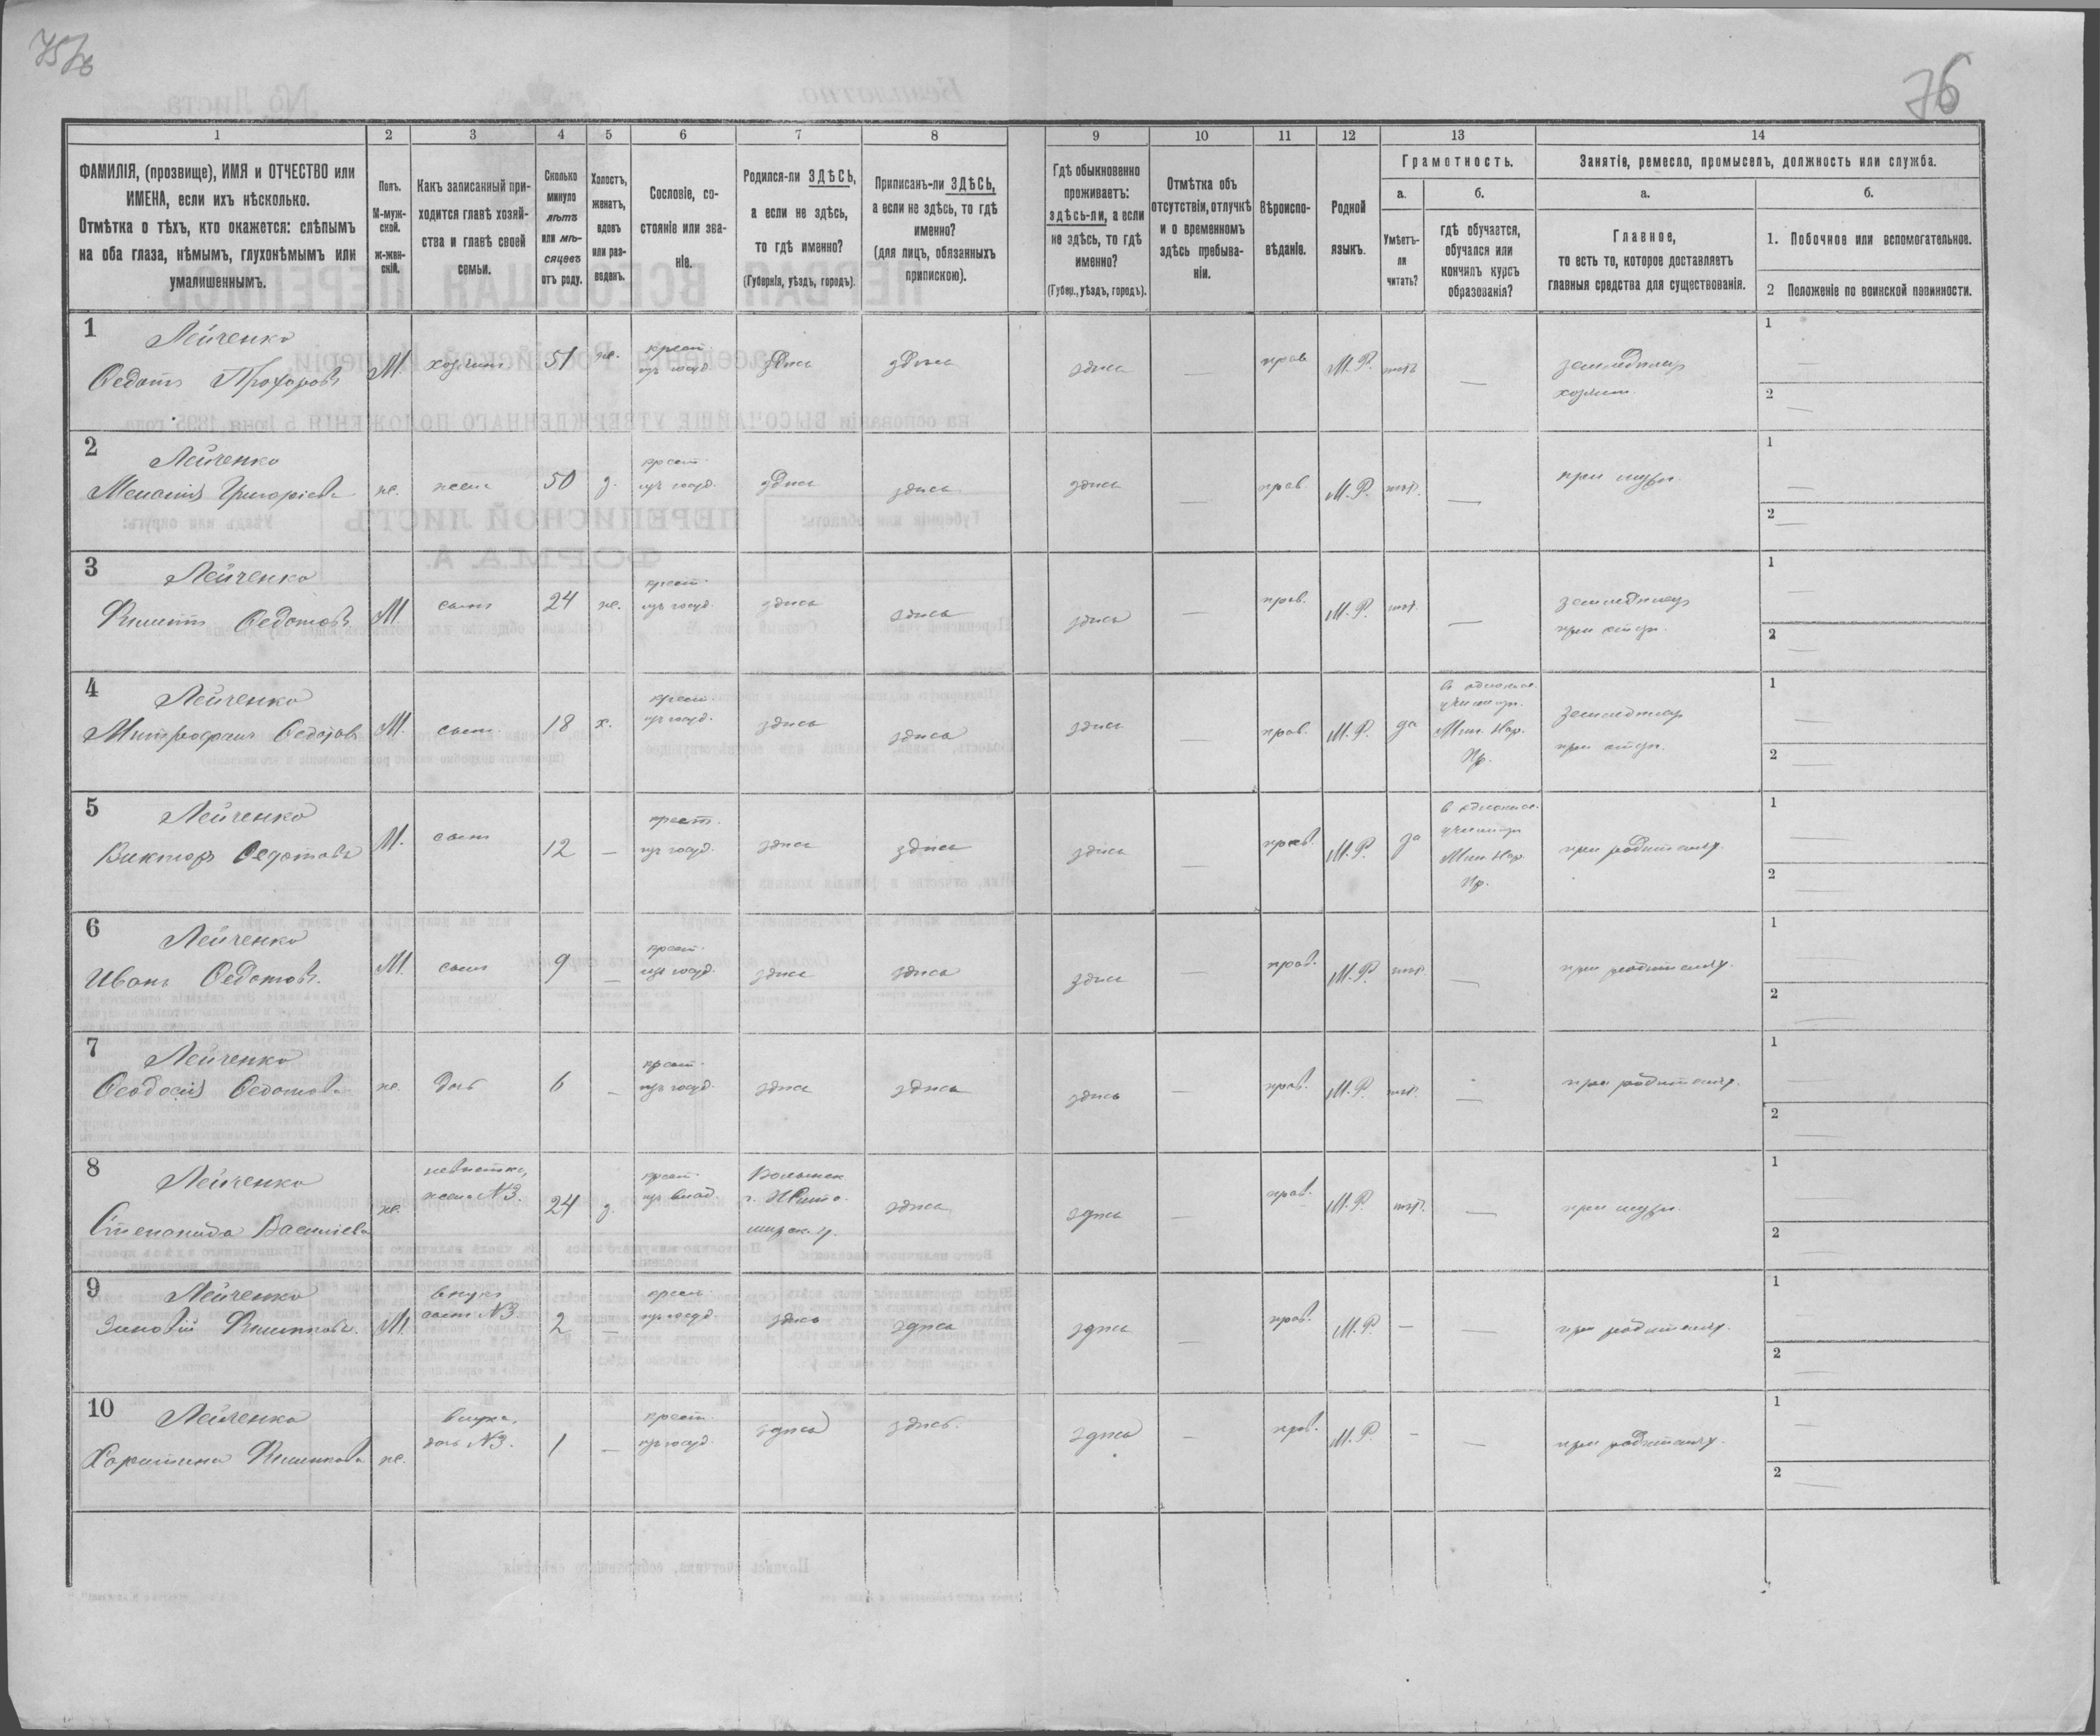 75об
76
1 2 3 4 5 6 7 8 9 10 11 12 13 14
ФАМИЛІЯ, (прозвище), ИМЯ и ОТЧЕСТВО или
ИМЕНА, если ихъ нѣсколько.
Отмѣтка о тѣхъ, кто окажется: слѣпымъ
на оба глаза, нѣмымъ, глухонѣмымъ или
умалишеннымъ.
Полъ.
М-муж-
ской.
ж-жен-
скій.
Какъ записанный при-
ходится главѣ хозяй-
ства и главѣ своей
семьи.
Сколько
минуло
лѣтъ
или мѣ-
сяцевъ
отъ роду.
Холостъ,
женатъ,
вдовъ
или раз-
веденъ.
Сословіе, со-
стояніе или зва-
ніе.
Родился-ли ЗДѢСЬ,
а если не здѣсь,
то гдѣ именно?
(Губернія, уѣздъ, городъ).
Приписанъ-ли ЗДѢСЬ,
а если не здѣсь, то гдѣ
именно?
(для лицъ, обязанныхъ
припискою).
Гдѣ обыкновенно
проживаетъ:
здѣсь-ли, а если
не здѣсь, то гдѣ
именно?
(Губер., уѣздъ, городъ).
Отмѣтка объ
отсутствіи, отлучкѣ
и о временномъ
здѣсь пребыва-
ніи.
Вѣроиспо-
вѣданіе.
Родной
языкъ.
Грамотность.
а.
Умѣетъ-
ли
читать?
б.
гдѣ обучается,
обучался или
кончилъ курсъ
образованія?
Занятіе, ремесло, промыселъ, должность или служба.
а.
Главное,
то есть то, которое доставляетъ
главныя средства для существованія.
б.
1. Побочное или вспомогательное.
2 Положеніе по воинской повинности.
1 Лейченко
Ѳедотъ Прохоровъ М. хозяин 51 же. крест. из госуд. здѣсь здѣсь здѣсь — прав М. Р. нѣтъ — земледѣлец хозяин 1 — 2 —
2 Лейченко
Меланія Григоріева же. жена 50 з. крест. из госуд. здѣсь здѣсь здѣсь — прав. М. Р. нѣт. — при мужѣ. 1 — 2 —
3 Лейченко
Филипъ Ѳедотовъ М сынъ 24 же. крест. из госуд. здѣсь здѣсь здѣсь — прав. М. Р. нѣт. — земледѣлец при отцѣ. 1 — 2 —
4 Лейченко
Митрофанъ Ѳедотовъ М. сынъ 18 х. крест. из госуд. здѣсь здѣсь здѣсь — прав. М. Р. да в одноклас. училищѣ Мин. Нар. Пр. земледѣлец при отцѣ. 1 — 2 —
5 Лейченко
Викторъ Ѳедотовъ М. сынъ 12 — крест. из госуд. здѣсь здѣсь здѣсь — прав. М. Р. да в одноклас. училищѣ Мин. Нар. Пр. при родителях. 1 — 2 —
6 Лейченко
Иванъ Ѳедотовъ. М. сынъ 9 — крест. из госуд. здѣсь здѣсь здѣсь — прав. М. Р. нѣт. — при родителях. 1 — 2 —
7 Лейченко
Ѳеодосія Ѳедотова же. дочь 6 — крест. из госуд. здѣсь здѣсь здѣсь — прав. М. Р. нѣт. — при родителях. 1 — 2 —
8 Лейченко
Степанида Васильева же. невѣстка, жена №3. 24 з. крест. из влад. Волынск г. здѣсь здѣсь — прав. М. Р. нѣт. — при мужѣ. 1 — 2 —
9 Лейченко
Зиновій Филиповъ. М. внукъ сынъ №3 2 — крест. из госуд. здѣсь здѣсь здѣсь — прав. М. Р. — — при родителях. 1 — 2 —
10 Лейченко
Харитина Филипова же. внучка, дочь №3. 1 — крест. из госуд. здѣсь здѣсь. здѣсь — прав. М. Р. — — при родителях. 1 — 2 —